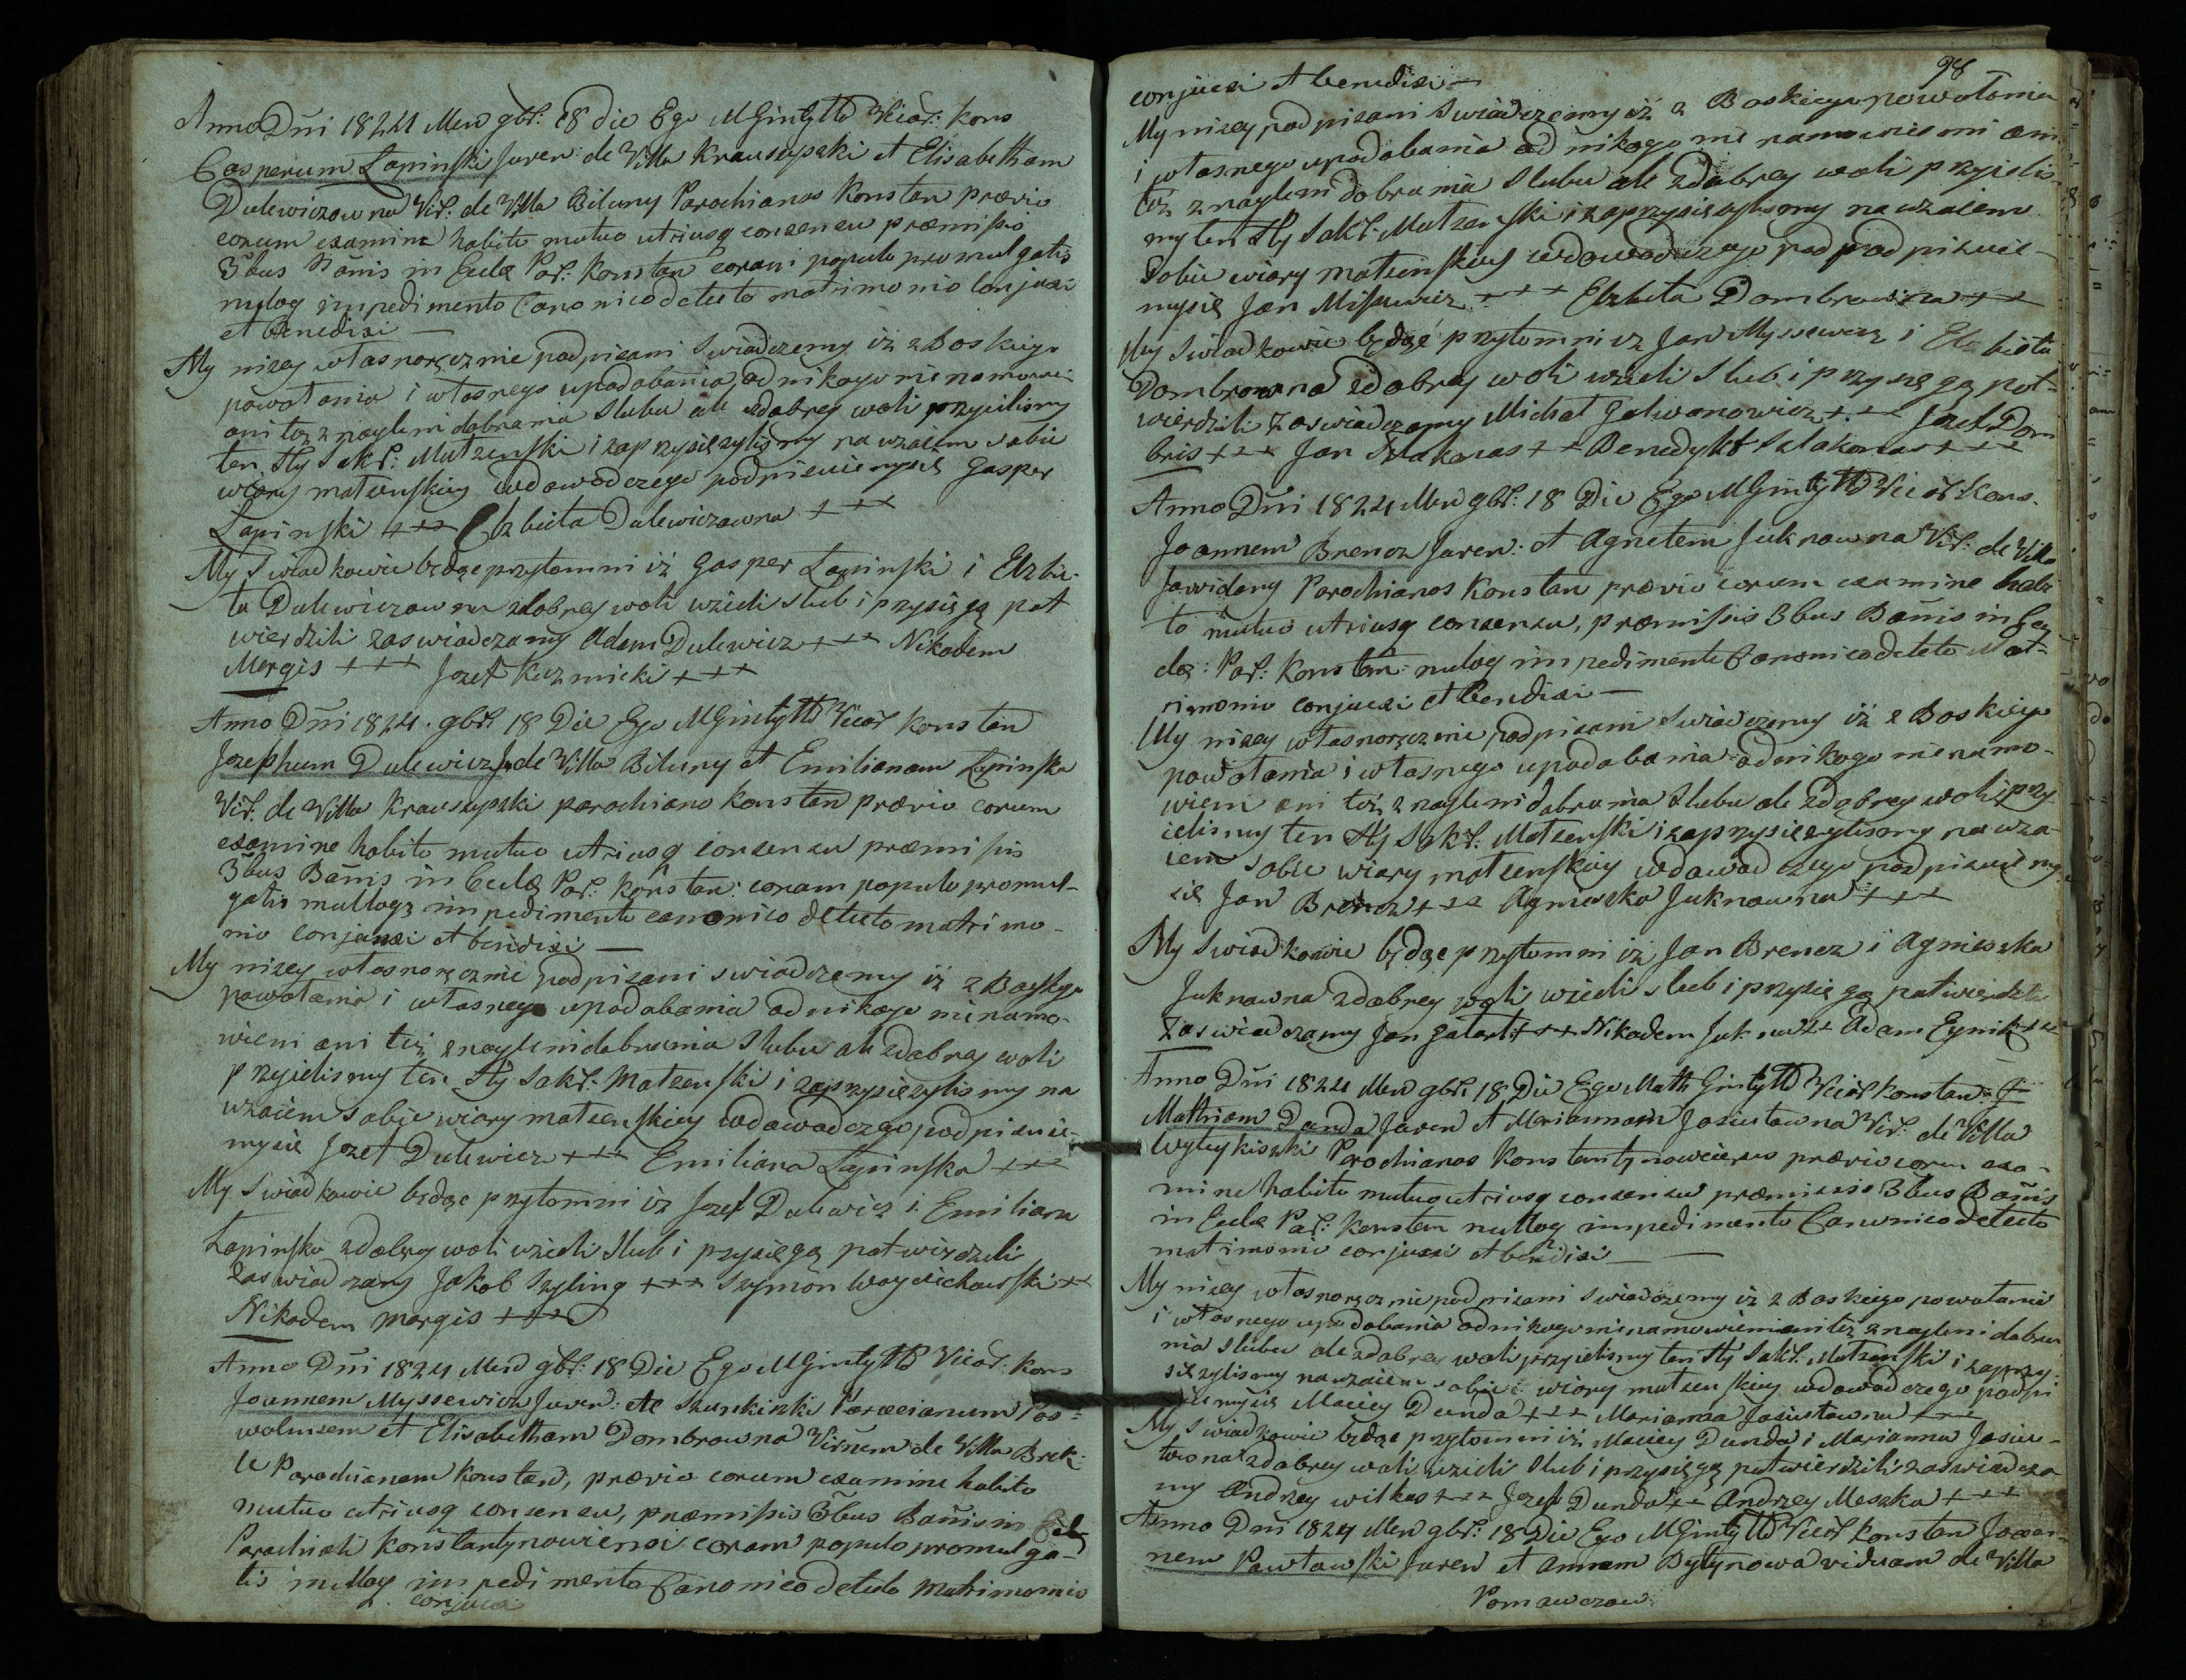 Anno Dñi 1824 Men gbr: 18 die Ego MGintyłło Vicar: Kons
Casperum Łapinski Juven: de Villa Krausupski et Elisabetham
Dulewiczowna Vir: de Villa Biluny Parochianos Konstan prævio
eorum examine habito mutuo utriusq consensu præmissis
3bus Bañis in Eccla Par: Konstan coram populo promulgatis
nulloq impedimento Canonico detecto matrimonio conjunxi
et Benedixi —
My niżey własnoręcznie podpisani swiadczemy iż z Boskiego
powołania i własnego upodobania, od nikogo nie namowie
ani też z nagleni dobrania slubu ale zdobrey woli przyielismy
ten Sty Sakr: Małzenski i zaprzysięzylismy na wzaiem sobie
wiary małzenskiey wdowod czego podpisuiemysię Gasper
Łapinski +++ Elzbieta Dulewiczowna +++
My swiadkowie będąc przytomni iż Gasper Łapinski i Elzbie-
ta Dulewiczowna zdobrey woli wzieli slub i przysięgą pot
wierdzili zaswiadczamy Adam Dulewicz +++ Nikodem
Mergis +++ Jozef Kuzmicki +++
Anno Dñi 1824. gbr: 18 Die Ego MGintyłło Vicar Konstan
Josephum Dulewicz J. de Villa Biluny et Emilianam Łapinska
Vir. de Villa Krausupski parochiano Konstan prævio eorum
examine habito mutuo utriusq consensu præmissis
3bus Bañis in Eccla Par: Konstan: coram populo promul-
gatis nulloq impedimento canonico detecto matrimo-
nio conjunxi et benedixi —
My niżey własnoręcznie podpisani swiadczemy iż z Boskgo
powołania i własnego upodobania od nikogo nienamo-
wieni ani też z nagleni dobrania slubu ale zdobrey woli
przyielismy ten Sty Sakr: Małzenski i zaprzysięzylismy na
wzaiem sobie wiary małzenskiey wdowod czego podpisuie-
mysię Jozef Dulewicz +++ Emiliana Łapinska +++
My swiadkowie będąc przytomni iż Jozef Dulewicz i Emiliana
Łapinska zdobrey woli wzieli slub i przysięgą potwierdzili
zaswiadczamy Jakob Szyling +++ Szymon Woyciechowski ++
Nikodem Margis +++
Anno Dñi 1824 Men gbr: 18 Die Ego MGintyłło Vicar: Kons
Joannem Myssewicz Juven: de Szunkiszki Parocianum Pos=
wolnsem et Elisabetham Dombrowna Virñem de Villa Brek-
le Parochianam Konstan, prævio eorum examine habito
mutuo utriusq consensu, præmissis 3bus Bañis in Eccl
Parochiali Konstantynowiensi coram populo promulga-
tis nulloq impedimento Canonico detecto Matrimonio
conjuxi
98
conjuxi et benedixi —
My niżey podpisani swiadczemy iż z Boskiego powołania
i własnego upodobania od nikogo nie namowieni ani
też z nagleni dobrania slubu ale zdobrey woli przyielis-
my ten Sty Sakr: Małzenski i zaprzysięzylismy na wzaiem
sobie wiary małzenskiey wdowod czego pod podpisuie-
mysię Jan Missewicz +++ Elzbieta Dombrowna ++
My swiadkowie będąc przytomni iż Jan Myssewicz i Elzbieta
Dombrowna zdobrey woli wzieli slub i przysięgą pot-
wierdzili zaswiadczamy Michał Galwanowicz ++ Jozef Dom
bris +++ Jan Szlakonas ++ Benedykt Szlakonas +++
Anno Dñi 1824 Men gbr: 18 Die Ego MGintyłło Vicar: Kons.
Joannem Brencz Juven: et Agnetem Juknowna Vir: de Villa
Jawidany Parochianos Konstan prævio eorum examine habi
to mutuo utriusq consensu, præmissis 3bus Bañis in Ec
cla: Par: Konstan: nuloq impedimento Canonico detecto Mat-
rimonio conjuxi et Benedixi —
My niżey własnoręcznie podpisani swiadczemy iż z Boskiego
powołania i własnego upodobania od nikogo nienamo-
wieni ani też z nagleni dobrania slubu ale zdobrey woli przy
ielismy ten Sty Sakr: Małzenski i zaprzysięzylismy na wza-
iem sobie wiary małzenskiey wdowod czego podpisuiemy
się Jan Brencz +++ Agnieszka Juknowna +++
My swiadkowie będąc przytomni iż Jan Brencz i Agnieszka
Juknowna zdobrey woli wzieli slub i przysięgą potwierdzili
zaswiadczamy Jan +++ Nikodem Juknu ++ Adam Eynik ++
Anno Dñi 1824 Men gbr: 18 Die Ego Math Gintyłło Vicar Konstan:
Mathiam Danda Juven et Mariannam Josiutowna Vir: de Villa
Wytykiszki Parochianos Konstantynowienses prævio eorum exa-
mine habito mutuo utriusq consensu præmissis 3bus Bañis
in Eccla Par: Konstan nulloq impedimento Canonico detecto
matimonio conjuxi et benedixi —
My niżey własnoręcznie podpisani swiadczemy iż z Boskiego powołania
i własnego upodobania od nikogo nienamowieni ani też z nagleni dobra
nia slubu ale zdobrey woli przyielismy ten Sty Sakr: Małzenski i zaprzy-
sięzylismy na wzaiem sobie wiary małzenskiey wdowod czego podpi
suiemysię Maciey Dunda +++ Marianna Josiutowna +++
My swiadkowie będąc przytomni iż Maciey Dunda i Marianna Josiu-
towna zdobrey woli wzieli slub i przysięgą potwierdzili zaswiadcza
my Andrzey Wilkas +++ Jozef Dunda ++ Andrzey Meszka +++
Anno Dñi 1824 Men gbr: 18 Die Ego MGintyłło Vicar Konstan Joan-
nem Pawłowski Juven et Annam Bytynowa viduam de Villa
Pomawczow